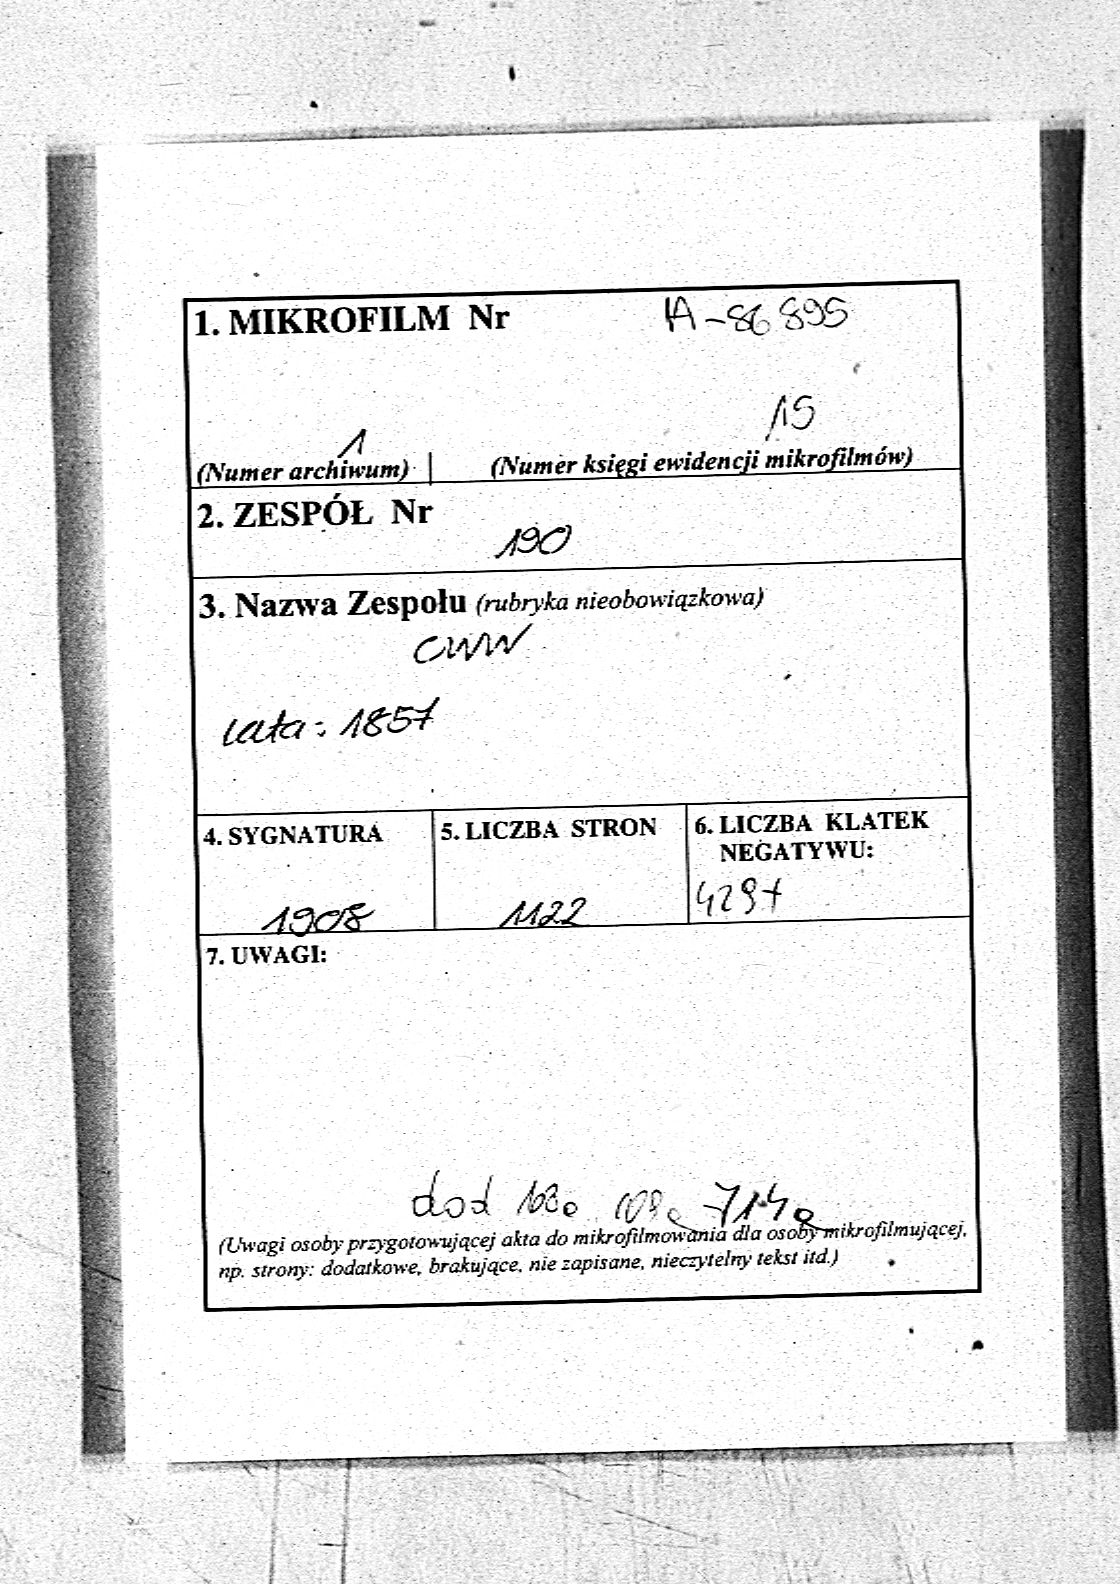 1. MIKROFILM Nr IA-86 895
1 15
(Numer archiwum) (Numer księgi ewidencji mikrofilmów)
2. ZESPÓŁ Nr
190
3. Nazwa Zespołu (rubryka nieobowiązkowa)
CWW
lata: 1857
4. SYGNATURA 5. LICZBA STRON 6. LICZBA KLATEK
NEGATYWU:
1908 1122
7. UWAGI:
dod 108a 109a 714a
(Uwagi osoby przygotowującej akta do mikrofilmowania dla osoby mikrofilmującej,
np. strony: dodatkowe, brakujące, nie zapisane, nieczytelny tekst itd.)